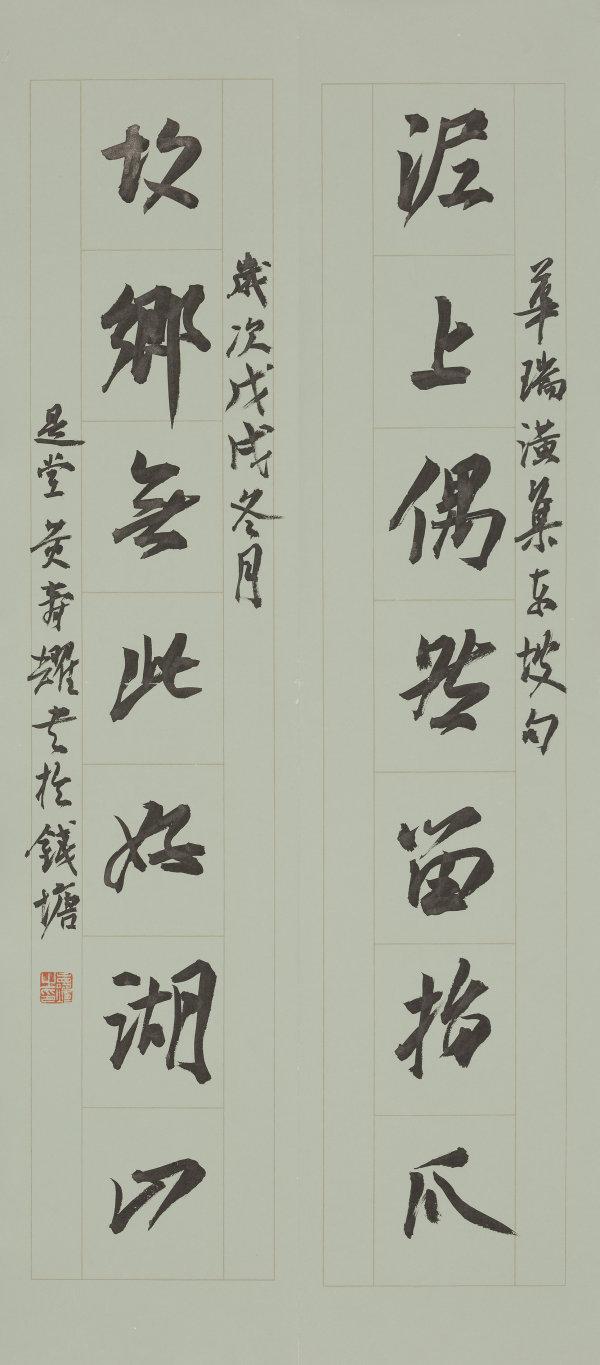 華瑞潢集東坡句
泥上偶然留指爪
歲次戊戌冬月
故鄉無此好湖山
是堂黃壽耀書於錢塘